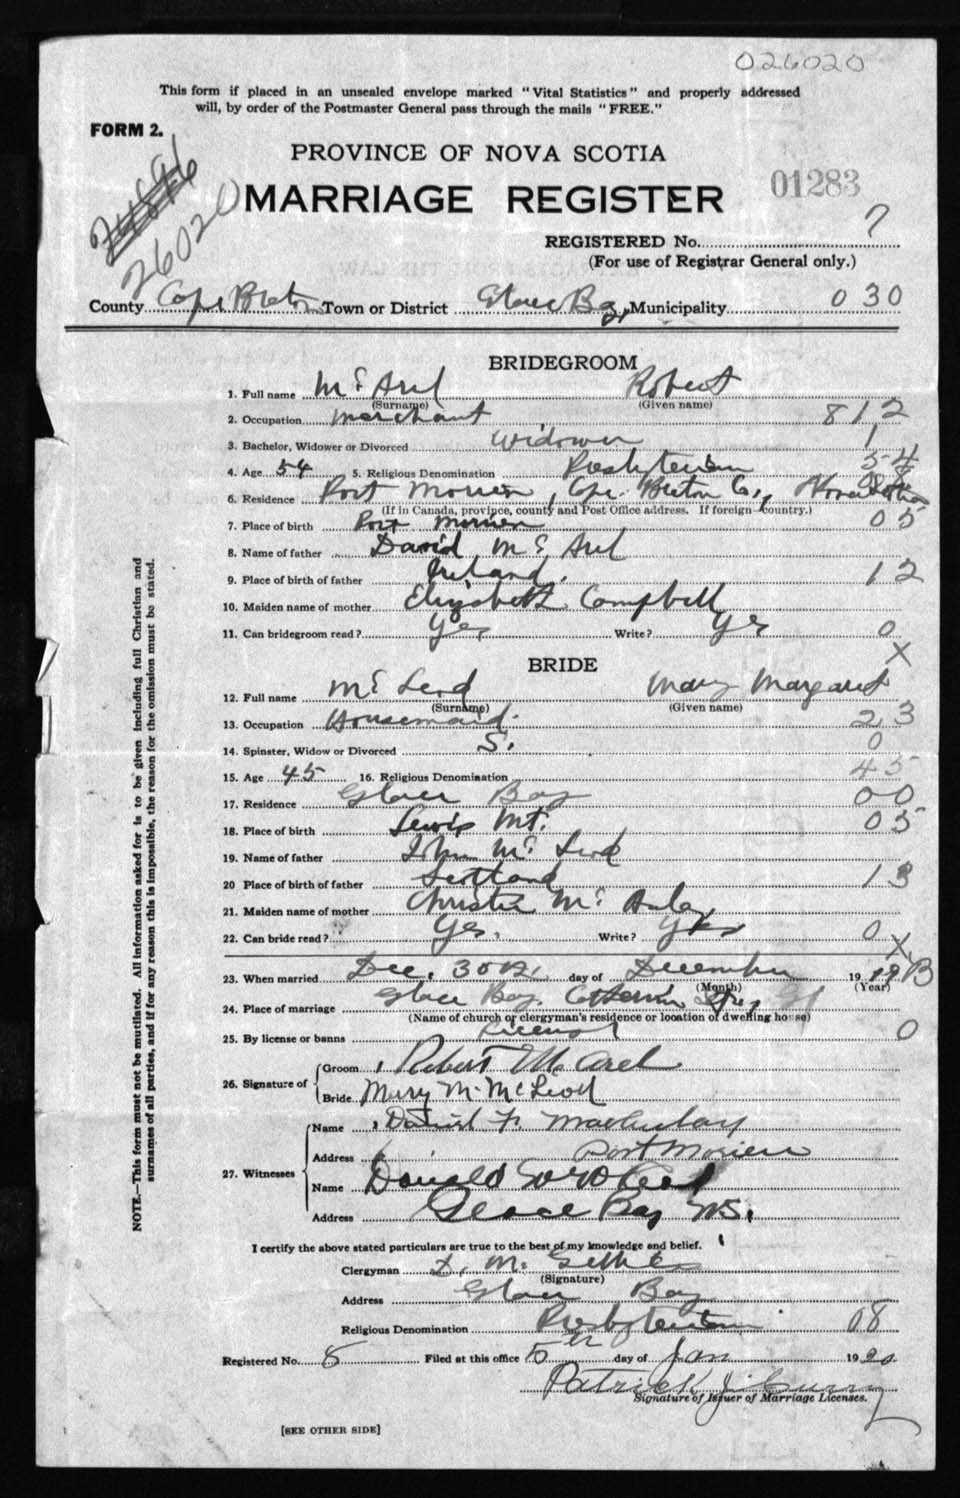 026020
This form if placed in an unsealed envelope marked "Vital Statistics" and properly addressed
will, by order of the Postmaster General pass through the mails "FREE."
FORM 2.
24896
26020
PROVINCE OF NOVA SCOTIA
MARRIAGE REGISTER
01283
REGISTERED No. 7
(For use of Registrar General only.)
County Cape Breton Town or District Glace Bay Municipality 030
BRIDEGROOM
1. Full name McArel Robert
(Surname) (Given name)
2. Occupation merchant 812
3. Bachelor, Widower or Divorced widower 1
4. Age 54 5. Religious Denomination Presbyterian 54
6. Residence Port Morien, Cape Breton Co., Nova Scotia
(If in Canada, province, county and Post Office address. If foreign country.)
7. Place of birth Port Morien 05
8. Name of father David McArel
9. Place of birth of father Ireland. 12
10. Maiden name of mother Elizabeth Campbell
11. Can bridegroom read? Yes Write? Yes 0
X
BRIDE
12. Full name McLeod Mary Margaret
(Surname) (Given name)
13. Occupation Housemaid. 23
14. Spinster, Widow or Divorced S. 0
15. Age 45 16. Religious Denomination 45
17. Residence Glace Bay 00
18. Place of birth Lewis Mt. 05
19. Name of father John McLeod
20 Place of birth of father Scotland 13
21. Maiden name of mother Christie McAuley
22. Can bride read? Yes. Write? Yes 0
X
23. When married Dec. 30th. day of December 1919 B
(Month) (Year)
24. Place of marriage Glace Bay, Catherine St
(Name of church or clergyman's residence or location of dwelling house)
25. By license or banns License 0
26. Signature of
Groom Robert McArel
Bride Mary M. McLeod
27. Witnesses
Name Daniel F. Macaulay
Address Port Morien
Name Donald
Address Glace Bay N.S.
I certify the above stated particulars are true to the best of my knowledge and belief.
Clergyman D. M. Gillies
(Signature)
Address Glace Bay
Religious Denomination Presbyterian 08
Registered No. 8 Filed at this office 5th day of Jan 1920
Patrick J. Curry
Signature of Issuer of Marriage Licenses.
[SEE OTHER SIDE]
NOTE.—This form must not be mutilated. All information asked for is to be given including full Christian and
surnames of all parties, and if for any reason this is impossible, the reason for the omission must be stated.